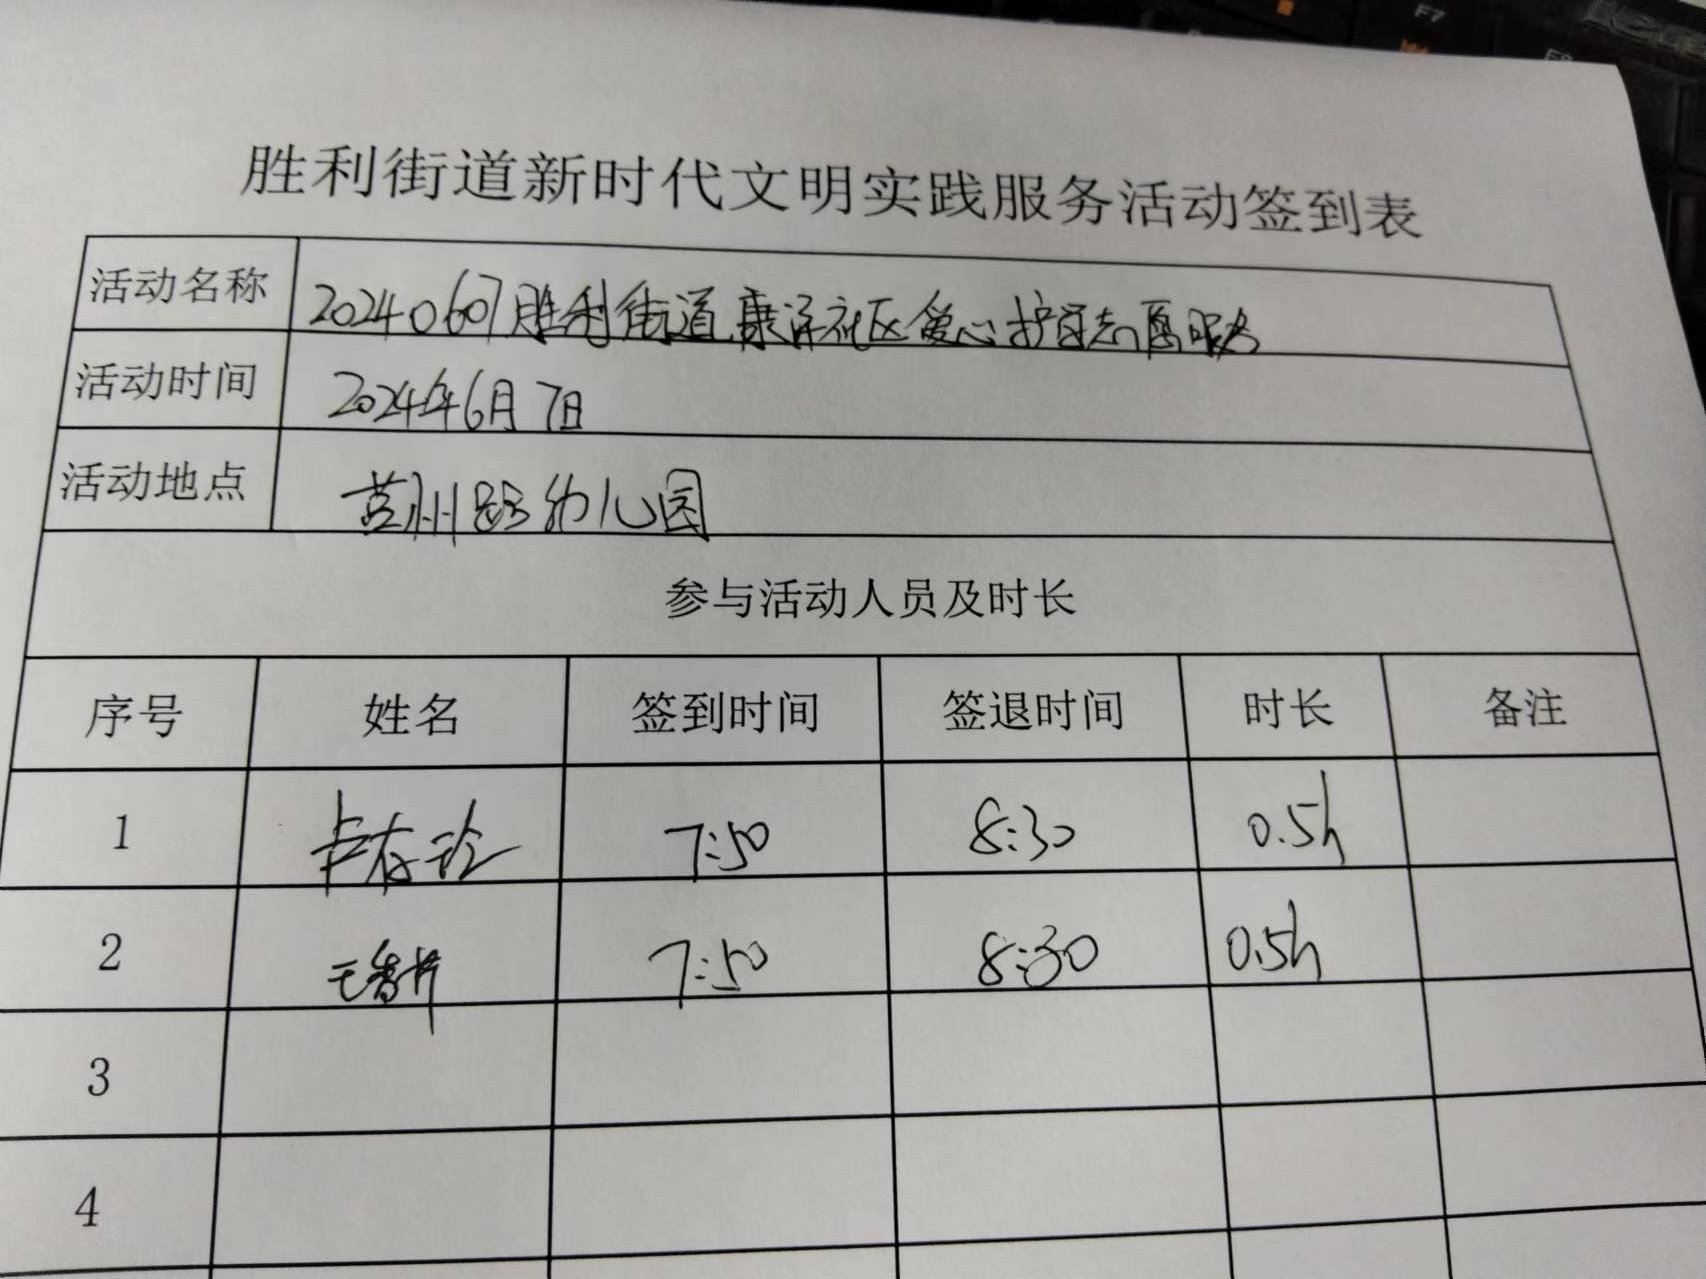 胜利街道新时代文明实践服务活动签到表
活动名称 20240607胜利街道康泽社区爱心护学志愿服务
活动时间 2024年6月7日
活动地点 苏州路幼儿园
参与活动人员及时长
序号 姓名 签到时间 签退时间 时长 备注
1 7:50 8:30 0.5h
2 7:50 8:30 0.5h
3
4
F7